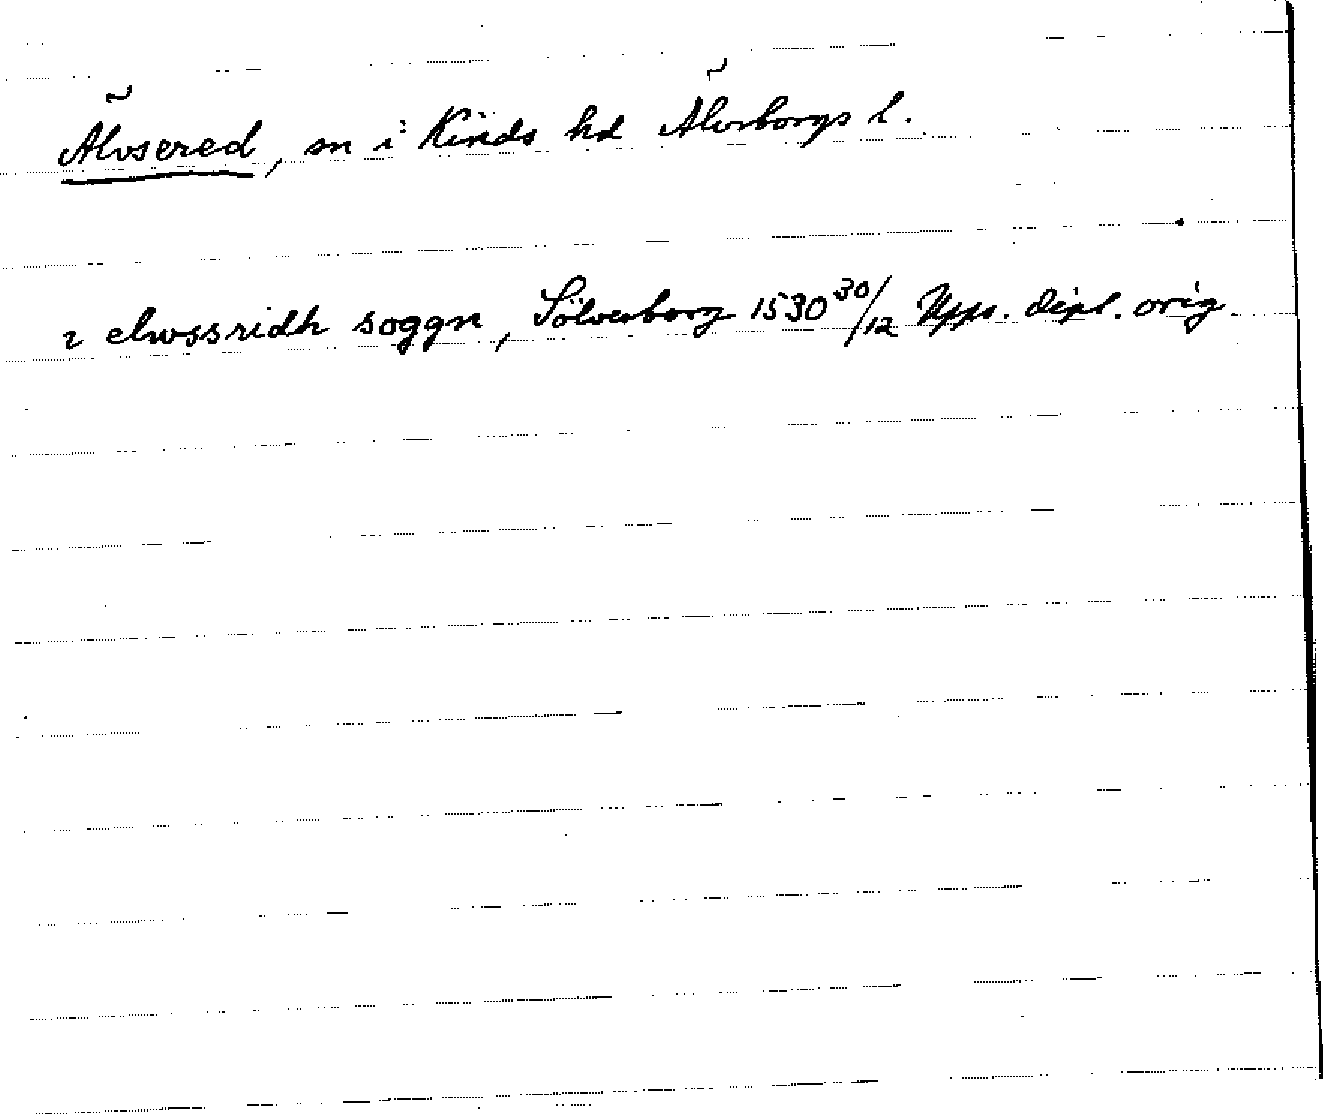 Älvsered, sn i Kinds hd Älvsborgs l.
i elwssridh soggn, Sölvesborg 1530 30/12 Upps. dipl. orig.